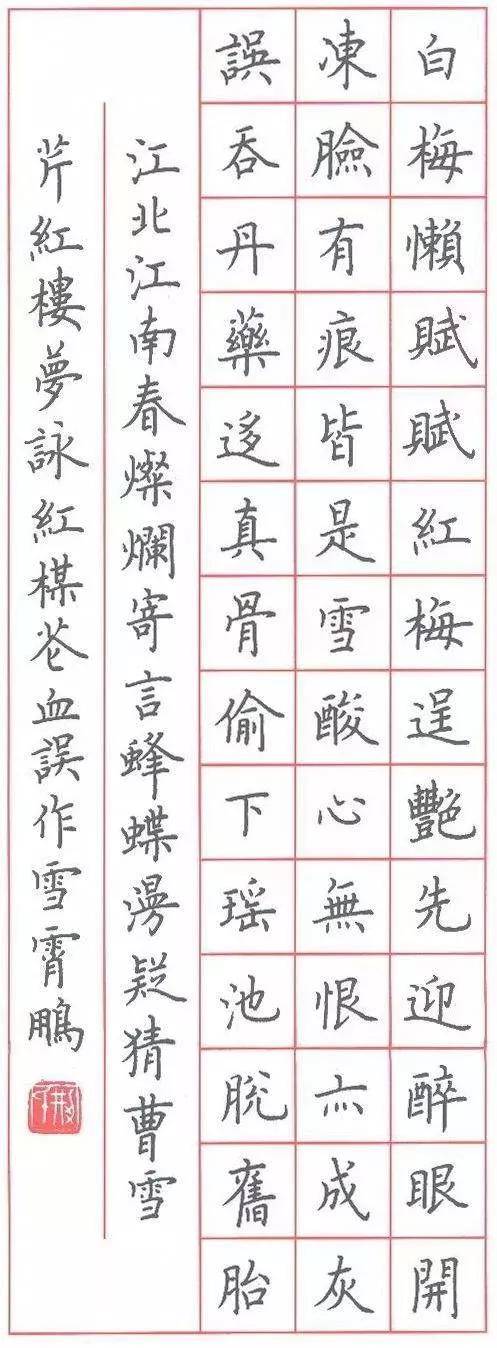 白梅懶賦賦紅梅逞艷先迎醉眼開
凍臉有痕皆是雪酸心無恨亦成灰
誤吞丹藥迻真骨偷下瑶池脫舊胎
江北江南春燦爛寄言蜂蝶漫疑猜曹雪
芹紅樓夢詠紅楳花血誤作雪霄鵬